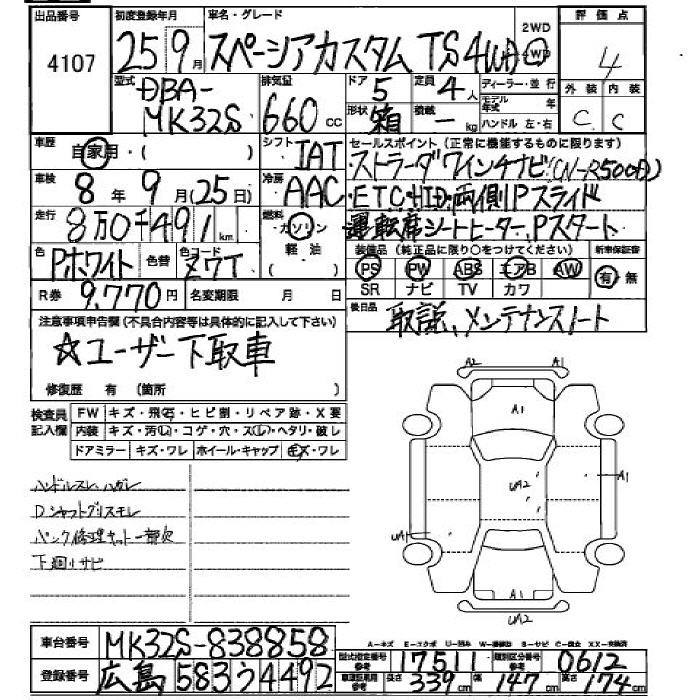 出品番号 初度登録年月 車名・グレード 2WD 評価点
4107 25 9月 スペーシアカスタム TS 4WD 4WD 4
型式 排気量 ドア 定員 ディーラー・並行 外装 内装
DBA-MK32S 660cc 5 4人 モデル年式 年 C C
形状 箱 積載 ー kg ハンドル 左・右
車歴 自家用・( ) シフト IAT セールスポイント(正常に機能するものに限ります)
ストラーダワインチナビ(CN-R500D)
車検 8年9月(25日) 冷房 AAC ETC・HID・両側Pスライド
走行 8万0千491km 燃料 ガソリン 軽油 運転席シートヒーター、Pスタート
色 Pホワイト 色替 色コード ZWT 装備品(純正品に限り○をつけてください) 新車保証書
PS PW ABS エアB AW 有・無
R券 9,770円 名変期限 月 日 SR ナビ TV カワ
注意事項申告欄(不具合内容等は具体的に記入して下さい) 後日品 取説、メンテナンスノート
☆ユーザー下取車
修復歴 有 (箇所 )
検査員記入欄 FW キズ・飛石・ヒビ割・リペア跡・X要
内装 キズ・汚れ・コゲ・穴・スレ・ヘタリ・破レ
ドアミラー キズ・ワレ ホイール・キャップ キズ・ワレ
A2 A1
A1
UA2 A1
UA1
A1
UA2
ハンドルスレ・ハガレ
Dシャフトグリスモレ
パンク修理キット一部欠
下廻りサビ
車台番号 MK32S-838858
A−キズ E−エクボ U−凹み W−補修跡 B−サビ C−腐食 XX−交換済
型式指定番号 参考 17511 類別区分番号 参考 0612
登録番号 広島 583 う 4492
長さ 339cm 幅 147cm 高さ 174cm